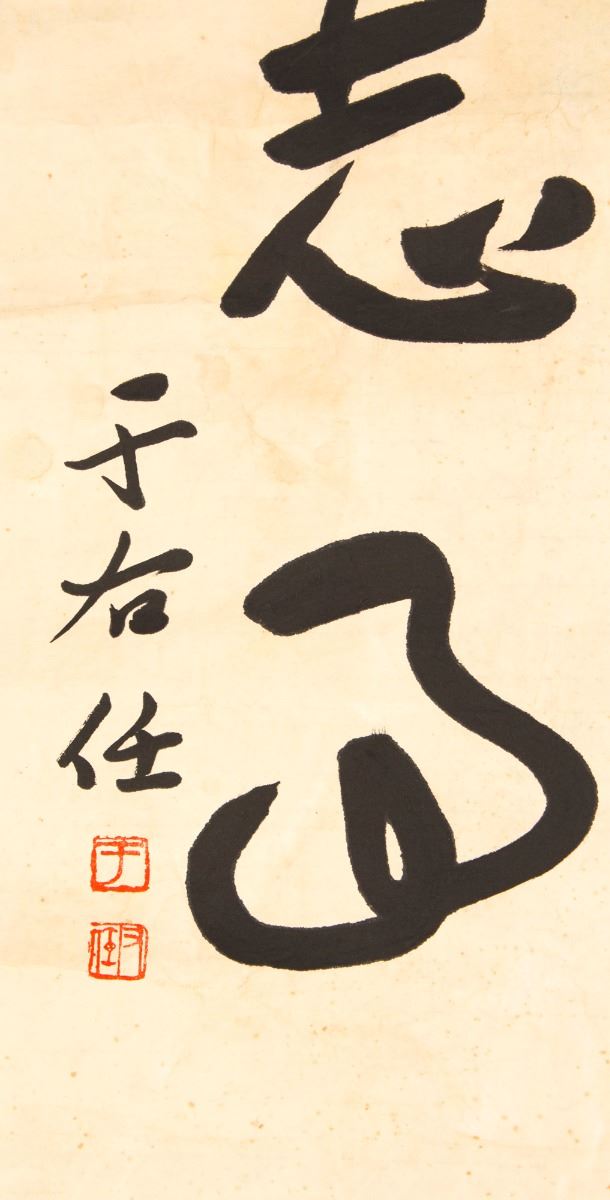 志
于右任
于
右任